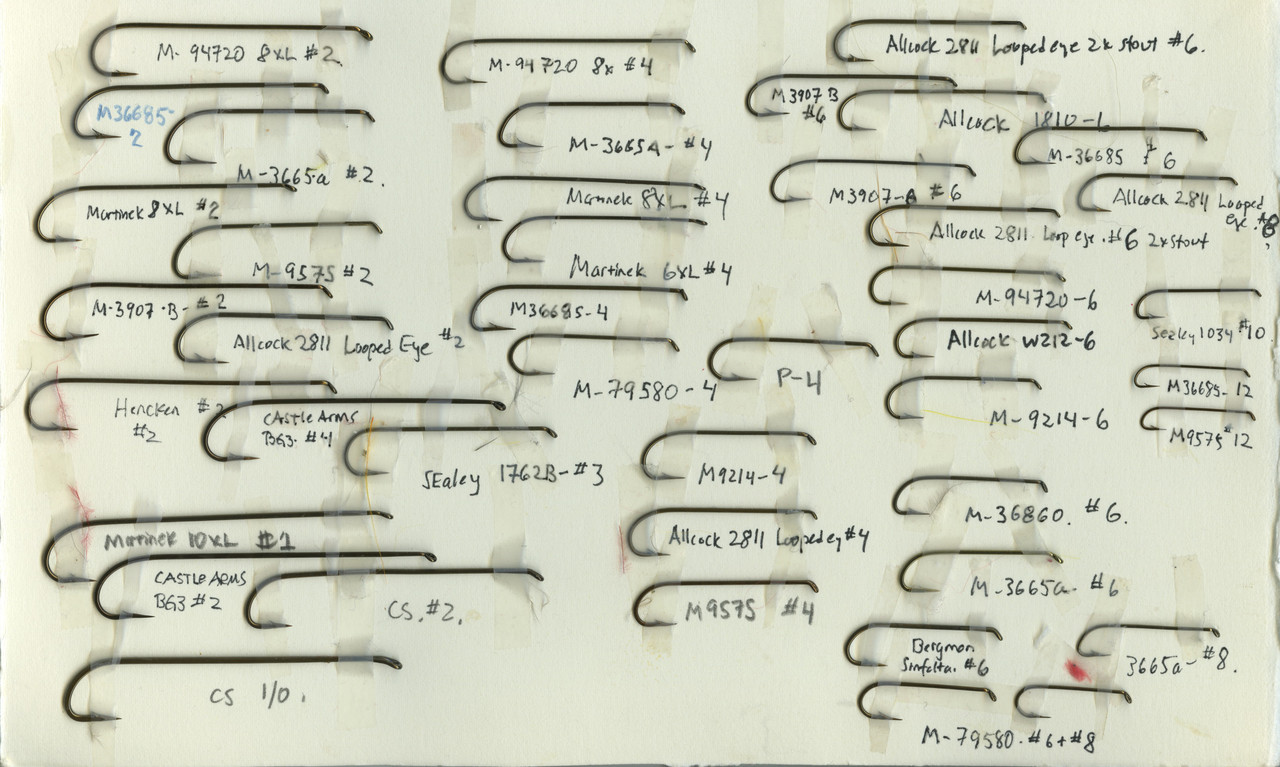 M-94720 8XL #2.
M36685-
2
M-3665-a #2.
Martinek 8XL #2
M-9575 #2
M-3907-B- #2
Allcock 2811 Looped Eye #2
Hencken #2
#2
CAStLe ARMS
BG3- #4
SEaley 1762B-#3
Martinek 10XL #1
CAStLe ARMS
BG3 #2
CS. #2.
CS 1/0.
M-94720 8x #4
M-3665A- #4
Martinek 8XL #4
Martinek 6XL #4
M36685-4
M-79580-4
P-4
M9214-4
Allcock 2811 Loopedey #4
M9575 #4
Allcock 2811 Loopedeye 2x stout #6.
M3907 B
#6
Allcock 1810-6
M-36685 #6
M3907-A #6
Allcock 2811 Looped
eye. #8
Allcock 2811. Loop eye. #6 2x stout
M-94720-6
Sealey 1034 #10
Allcock W212-6
M36685-12
M-9214-6
M9575 #12
M-36860. #6.
M-3665a- #6
Bergman
#6
3665a- #8.
M-79580. #6+#8